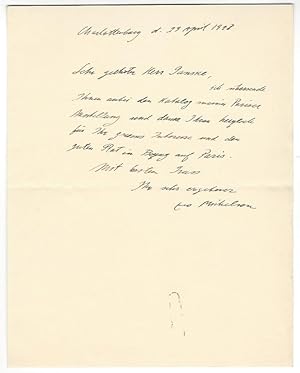 Charlottenburg d. 23 April 1928
Sehr geehrter Herr
ich übersende
Ihnen anbei den Katalog meiner Pariser
Ausstellung und danke Ihnen herzlich
für Ihr grosses Interesse und den
guten Rat in Bezug auf Paris.
Mit besten Gruss
Ihr sehr ergebener
Leo Michelson